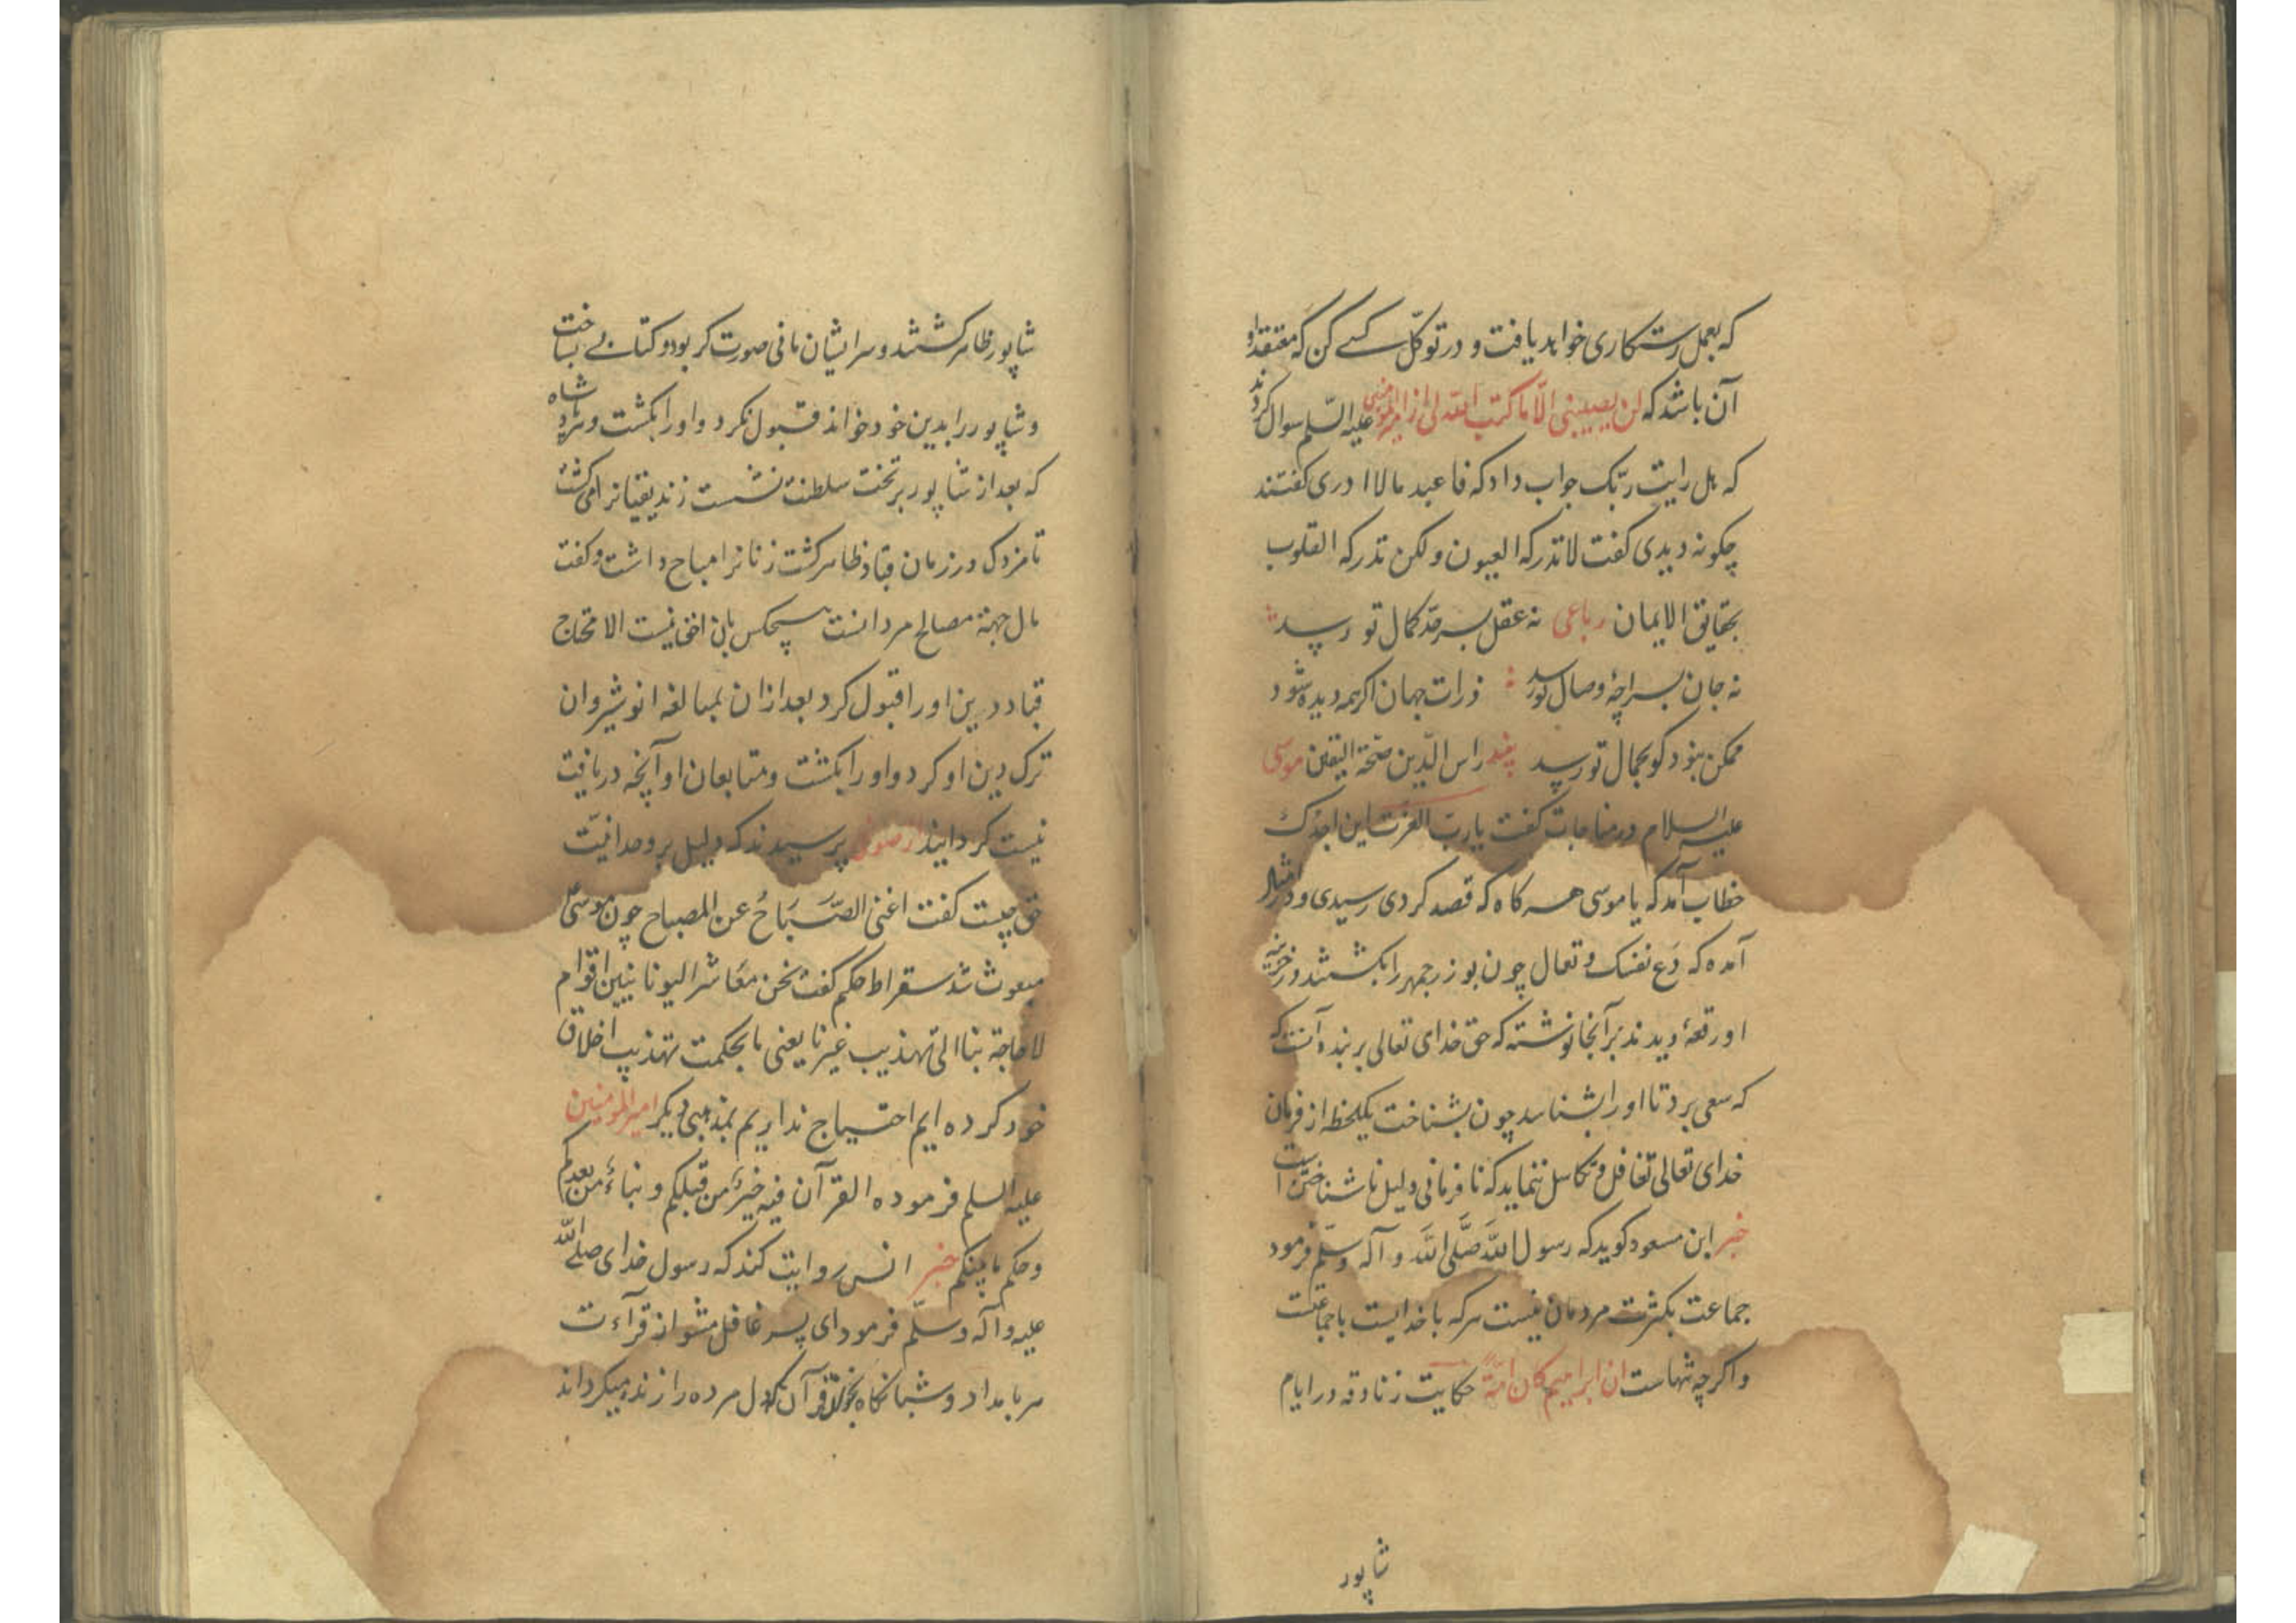 که بعمل رستکاری خواهد یافت و در توکّل کسے کن که معتقد او
آن باشد که لن یصیبنی الّا ما کتب الله لی از امیرالمؤمنین علیه السّلم سوال کردند
که هل رایت ربّک جواب داد که فاعبد ما لا ادری کفتند
چکونه دیدی کفت لا تدرکه العیون ولکن تدرکه القلوب
بحقایق الایمان رباعی نه عقل بسرحدّ کمال تو رسد
نه جان بسراچۀ وصال تو رسد ذرات جهان اکر همه دیده شود
ممکن نبود کو بجمال تو رسد پند راس الدّین صحّة الیقین موسی
علیه السلام در مناجات کفت یا ربّ العزت این اجدک
خطاب آمد که یا موسی هر کاه که قصد کردی رسیدی و در امثال
آمده که دَع نفسک و تعال چون بوزرجمهر را بکشتند در خزینه
او رقعۀ دیدند بر آنجا نوشته که حق خدای تعالی بر بنده آنست که
که سعی برد تا او را بشناسد چون بشناخت یکلحظه از فرمان
خدای تعالی تغافل و تکاسل ننماید که نافرمانی دلیل ناشناختن است
خبر ابن مسعود کوید که رسول اللهَ صَلَّی اللهَ و آله وسلّم فرمود
جماعت بکثرت مردمان نیست هرکه با خدایست با جماعتست
و اکر چه تنهاست انّ ابراهیم کان امّة حکایت زنادقه در ایام
شاپور
شاپور ظاهر کشتند و سر ایشان مانی صورت کر بود و کتابے بساخت
و شاپور را بدین خود خواند قبول نکرد و او را بکشت و شاه
که بعد از شاپور بر تخت سلطنت نشست زندیقیانرا می کشت
تا مزدک در زمان قباد ظاهر کشت زنانرا مباح داشت و کفت
مال جهة مصالح مردانست هیچکس بان احق نیست الا محتاج
قباد دین او را قبول کرد بعد ازان بمبالغه انوشیروان
ترک دین او کرد و او را بکشت و متابعان او آنچه دریافت
نیست کردانید از صوفی پرسیدند که دلیل بر وحدانیّت
حق چیست کفت اغنی الصَّبَاحُ عن المصباح چون موسیٰ
مبعوث شد سقراط حکیم کفت نحن معَاشر الیونانیین اقوام
لا حاجة بنا الی تهذیب غیرنا یعنی ما بحکمت تهذیب اخلاق
خود کرده ایم احتیاج نداریم بمذهبی دیکر امیرالمؤمنین
علیه السلم فرموده القرآن فیه خبرُ من قبلکم و نباءُ من بعدکم
و حکم ما بینکم خبر انس روایت کند که رسول خدای صلے الله
علیه وآله وسلّم فرمود ای پسر غافل مشو از قرآءت
هر بامداد و شبانکاه بخوان قرآن که دل مرده را زنده میکرداند